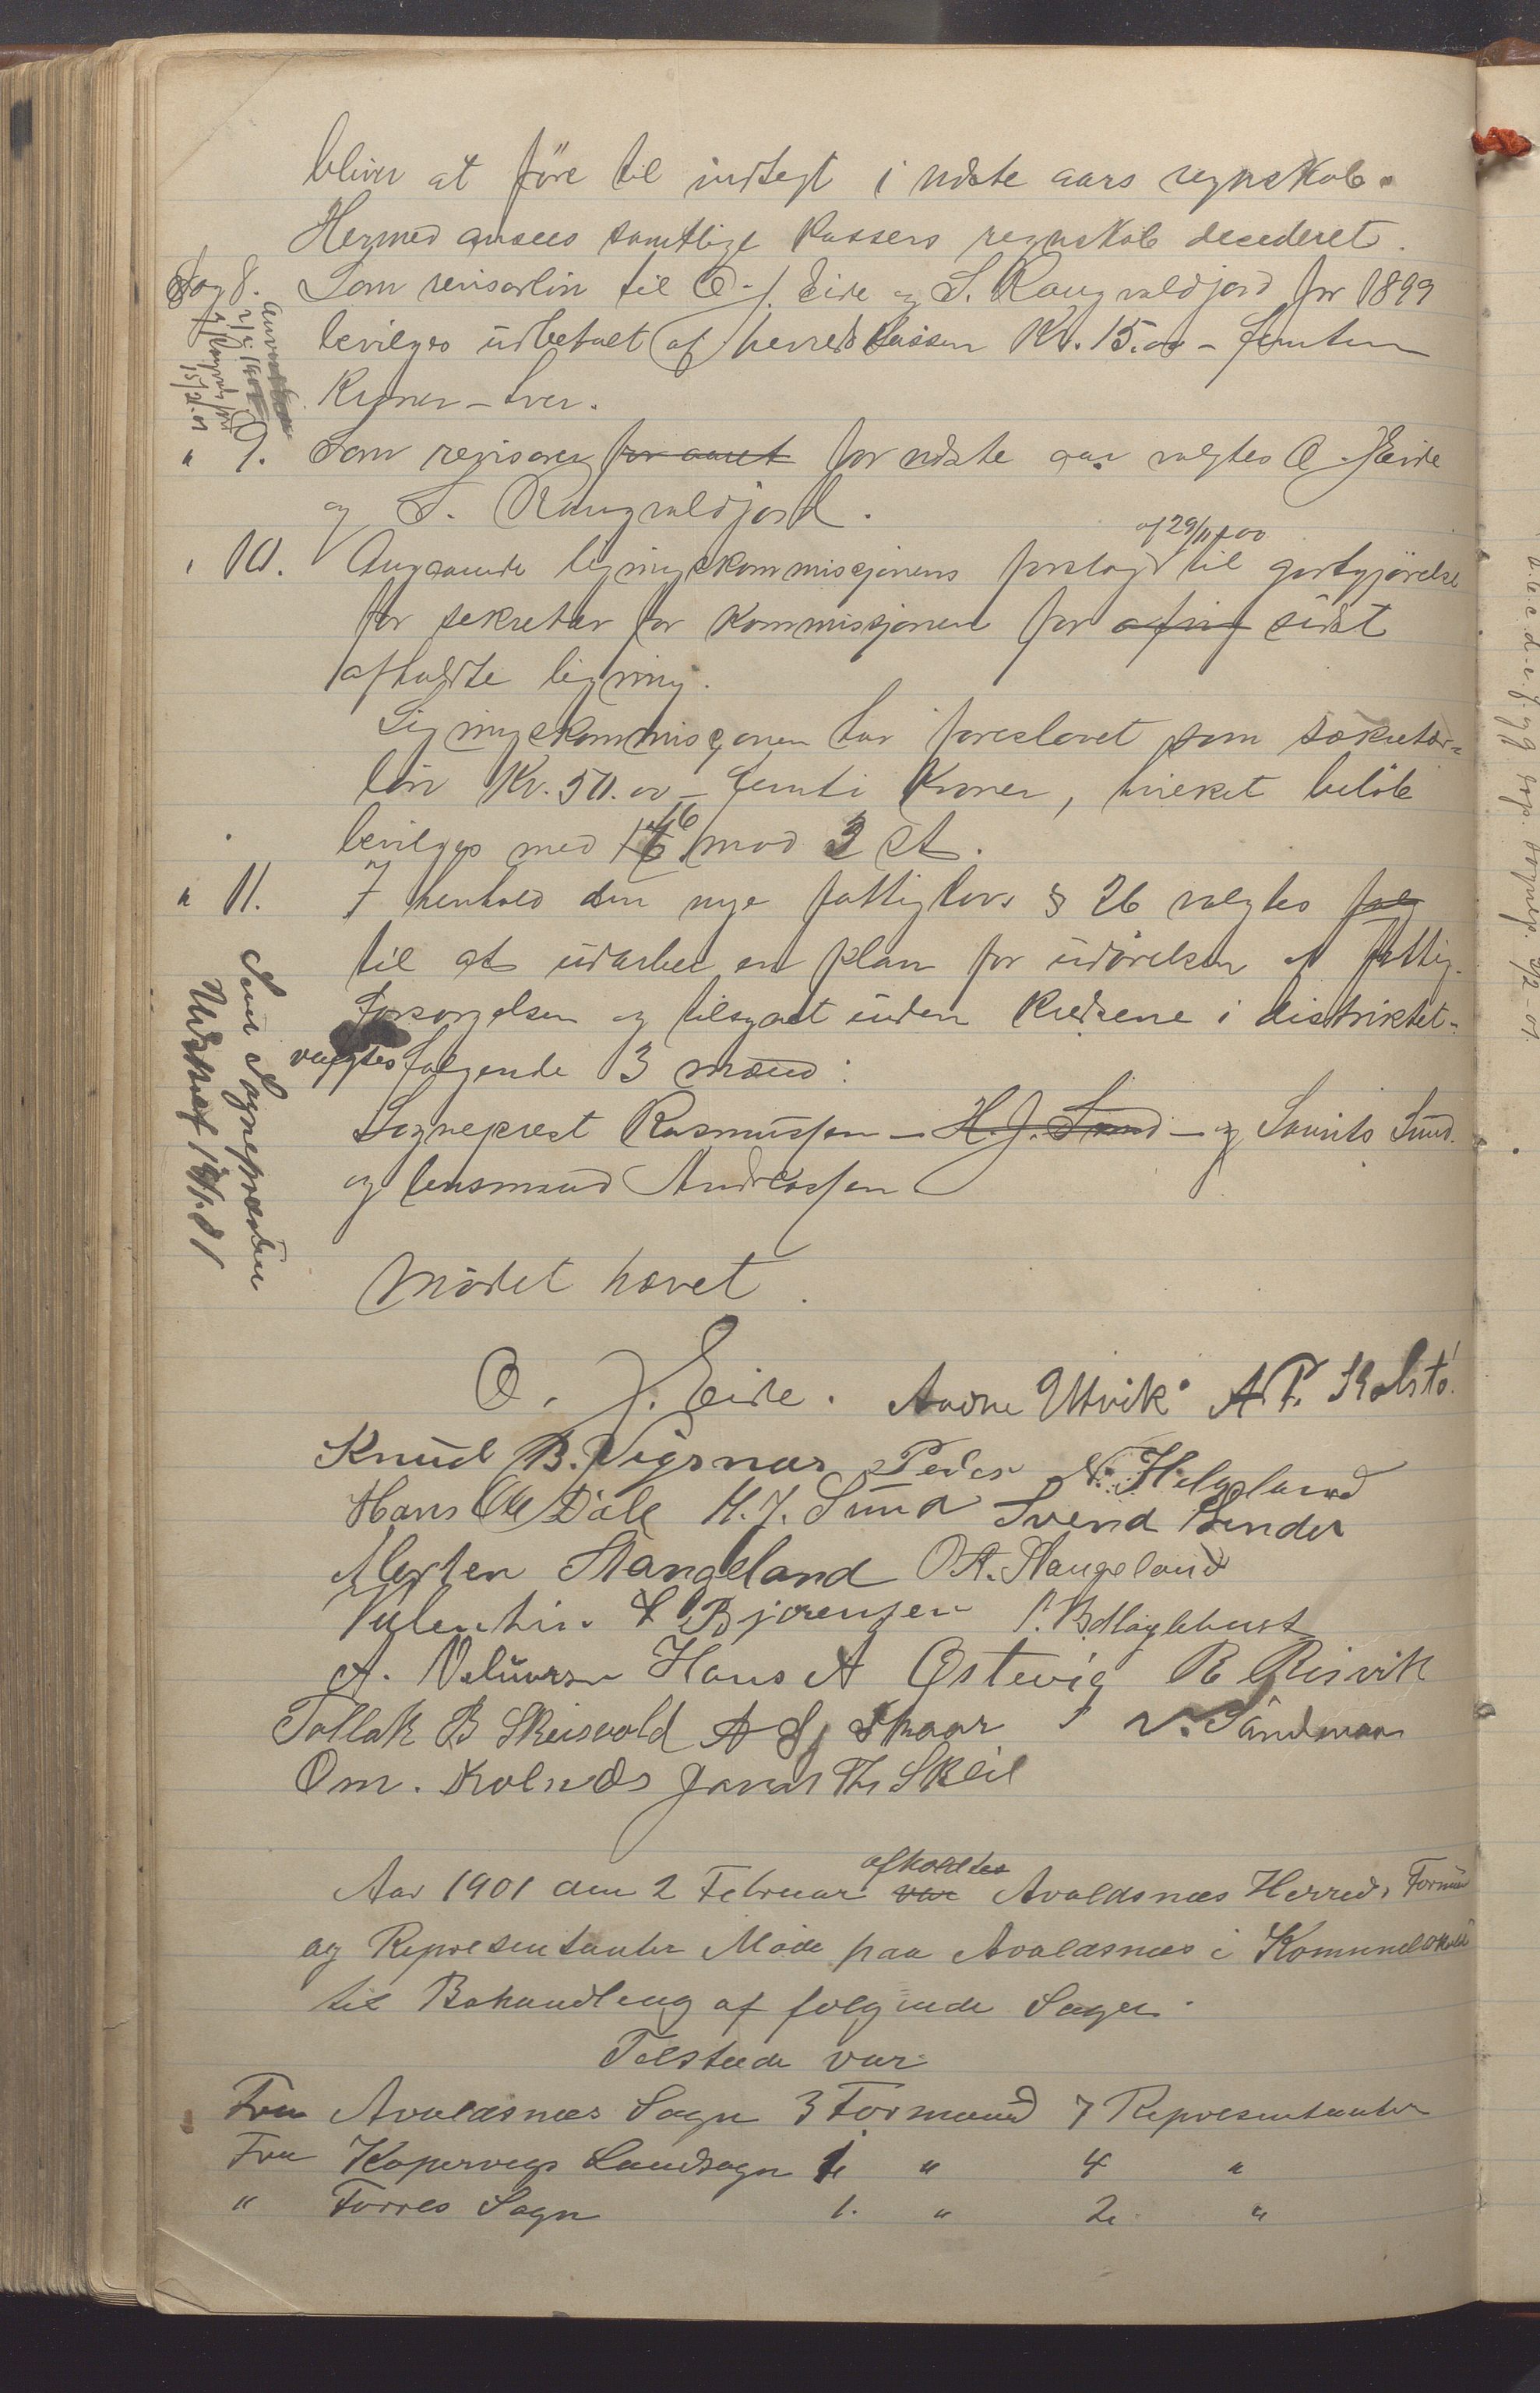 bliver at före til indtegt i næste aars regnskab.
Hermed ansees samtlige kassers regnskab decederet.
Sag 8. Som revisorlön til O. J. Eide og S. Raugvaldjord for 1899
bevilges udbetalt af herredskassen Kr. 15.00 – femten
Kroner – hver.
" 9. Som revisorer for aaret for næste aar valgtes O. J. Eide
og S. Raugvaldjord.
af 29/11 1900
" 10. Angaaende ligningskommissjonens forslag til godtgjörelse
for sekretær for kommissjonen for sidst
afholdte ligning.
Ligningskommisjonen har foreslaaet som sekretær-
lön Kr. 50.00 – femti Kroner, hvilket belöb
bevilges med 16 mod 3 st.
" 11. I henhold den nye fattiglovs § 26 valgtes
til at udarbei en plan for udörelsen af fattig-
forsorgelsen og tilsynet inden kredsene i distriktet-
valgtes følgende 3 mænd:
Sogneprest Rasmussen – H. J. Sund – og Laurits Sund
og lensmand Andreassen
Sendt Sognepræsten
Udskrift
Mödet hævet.
O. J. Eide. Aadne Utvik A. P. Kolstö.
Knud B. Vigsnæs Peder N. Helgeland
Hans Dale H. J. Sund Svend
Morten Stangeland O A. Stangeland
Valentin Bjørensen
A. Hans A Østevig R Risvik
Tollak B Skeisvold A Skaar
Om. Kolnæs Th. Skeie
afholdtes
Aar 1901 den 2 Februar var Avaldsnæs Herreds Formænd
og Representanter Møde paa Avaldsnæs i Komunelokale
til Behandling af følgende Sager.
Tilstede var
Fra Avaldsnæs Sogn 3 Formænd 7 Representanter
Fra Kopervigs Landsogn 1 " 4 "
" Torves Sogn 1. " 2 "